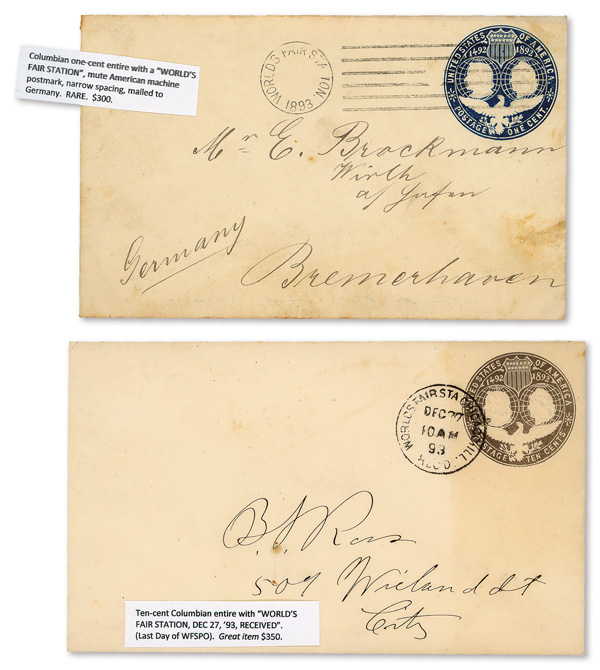 Columbian one-cent entire with a "WORLD'S
FAIR STATION", mute American machine
postmark, narrow spacing, mailed to
Germany. RARE. $300.
WORLD'S FAIR STATION
1893
UNITED STATES OF AMERICA
1492 1892
POSTAGE ONE CENT
Mr E. Brockmann
Wirth
a/
Germany
Bremerhaven
UNITED STATES OF AMERICA
1492 1892
POSTAGE TEN CENTS
WORLD'S FAIR STA CHICAGO, ILL.
DEC 27
10 AM
93
REC'D.
B. J. Ross
509 Wieland St
City
Ten-cent Columbian entire with "WORLD'S
FAIR STATION, DEC 27, '93, RECEIVED".
(Last Day of WFSPO). Great item $350.